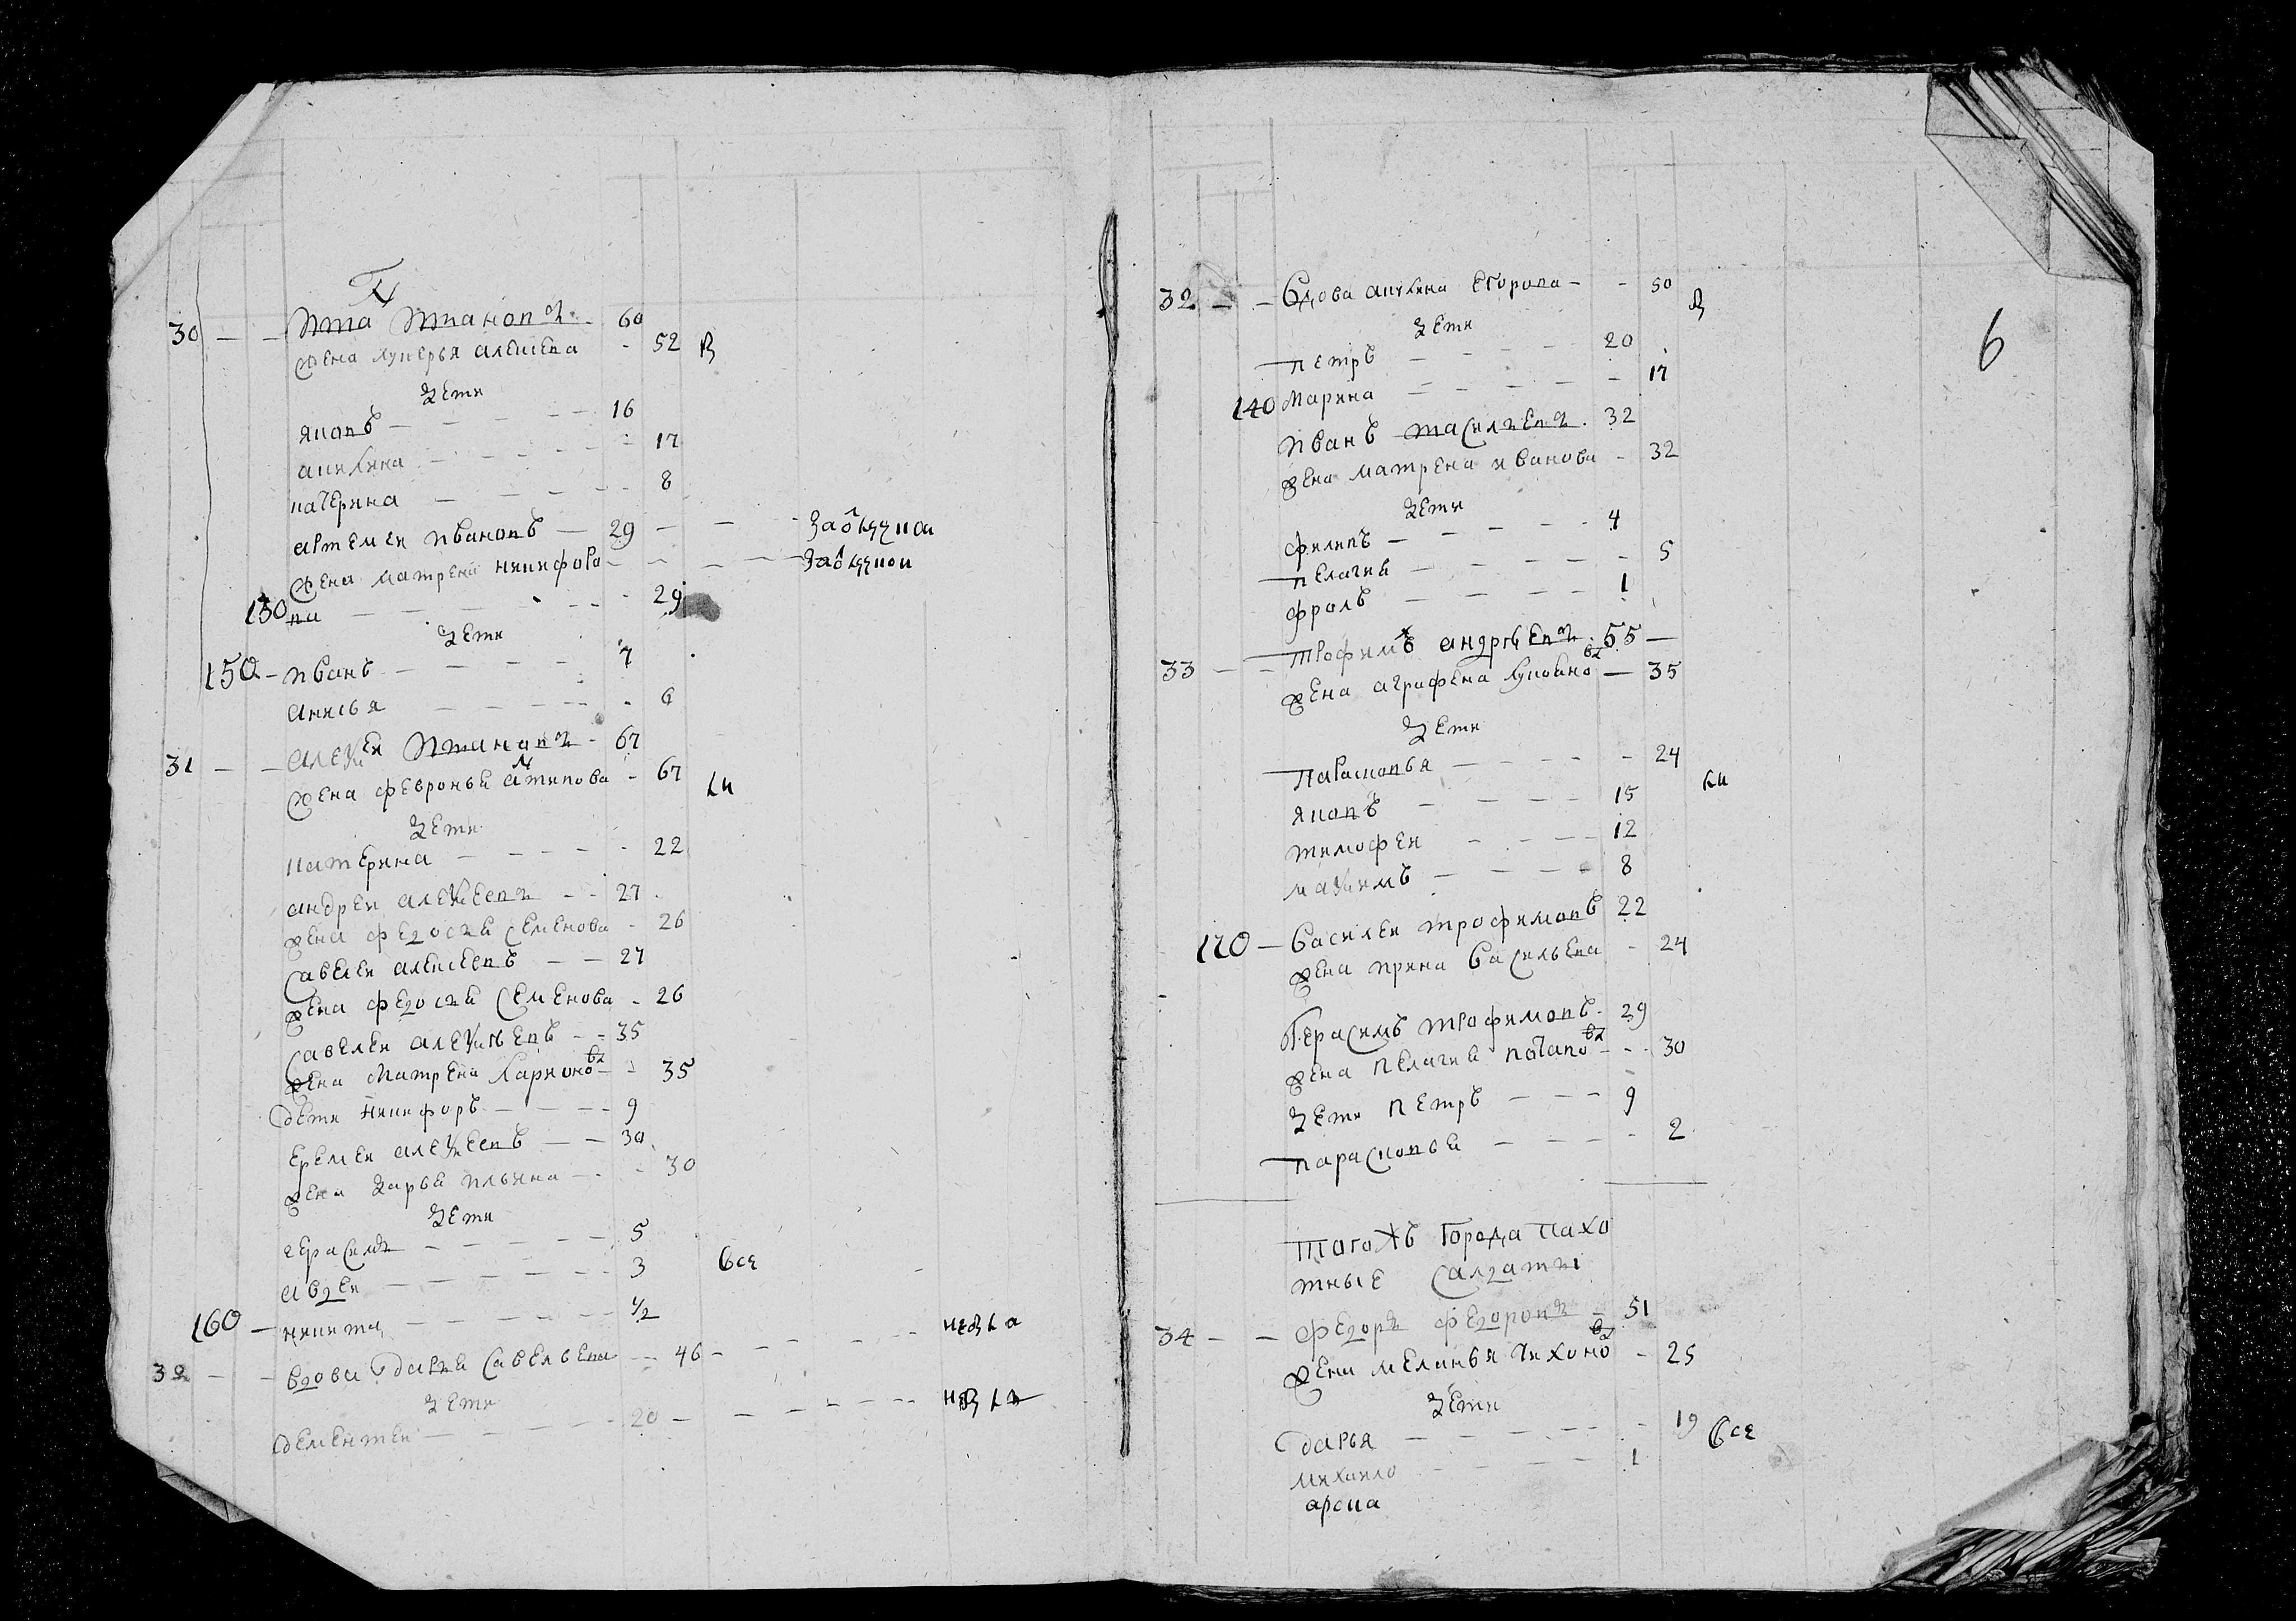 30 — — Иванъ 60
жена лукерья алексева - 52 В
дети
яковъ — 16
акилина - 17
катерина — 8
артемеи ивановъ — 29
жена матрена никифоро
130 ва — 29
дети
150 — иванъ — 7
анисья - 6
31 — — алексеи Ивановъ - 67
жена февронья антипова - 67
дети
катерина - 22
андреи алексеевъ - - 27
жена федосья семенова - 26
савелеи алексеевъ - - 27
жена федосья семенова - 26
савелеи алексѣевъ - - 35
жена матрена ларионова - 35
дети никифоръ — 9
еремеи алексеевъ — 30
жена дарья ильина — 30
дети
герасимъ — 5
авдеи — 3 все
160 — никита — 1/2
32 — — вдова дарья савельева — 46 —
дети
дементеи — 20 —
6
32 — — Вдова акилина егорова - - 50 В
дети
петръ — 20
140 марина — 17
иванъ васильевъ. 32
жена матрена иванова - 32
дети
филипъ — 4
пелагея — 5
фролъ — 1
33 — — трофимъ андрѣевъ. 55 —
жена аграфена лукоянова — 35
дети
парасковья — 24
яковъ — 15
тимофеи — 12
максимъ — 8
170 — василеи трофимовъ 22
жена ирина васильева - 24
герасимъ трофимовъ. 29
жена пелагея потапова - - 30
дети петръ — 9
парасковья — 2
тогожъ города пахо
тные салдаты
34 — — федоръ федоровъ - 51
жена меланья тихонова - 25
дети
дарья — 19 все
михаило — 1